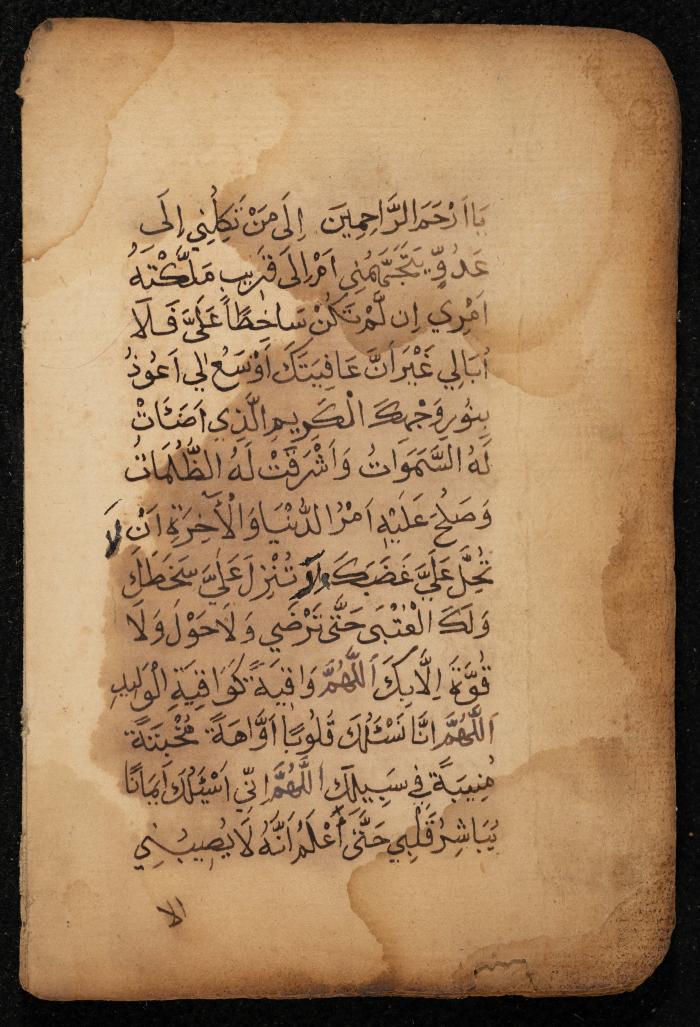 يَا اَرْحَمَ الرَّاحِمِينَ اِلَى مَنْ تَكِلُنِي اِلَى
عَدُوٍّ يَتَجَهَّمُنِي اَمْ اِلَى قَرِيبٍ مَلَّكْتَهُ
اَمْرِي اِن لَّمْ تَكُنْ سَاخِطًا عَلَيَّ فَلَا
اُبَالِي غَيْرَ اَنَّ عَافِيَتَكَ اَوْسَعُ لِي اَعُوذُ
بِنُورِ وَجْهِكَ الْكَرِيمِ الَّذِي اَضَئَاتْ
لَهُ السَّمَوَاتُ وَاَشْرَقَتْ لَهُ الظُّلُمَاتُ
وَصَلُحَ عَلَيْهِ اَمْرُ الدُّنْيَا وَالْآخِرَةِ اَنْ لَا
تُحِلَّ عَلَيَّ غَضَبَكَ وَلَا تُنْزِلَ عَلَيَّ سَخَطَكَ
وَلَكَ الْعُتْبَى حَتَّى تَرْضَي وَلَا حَوْلَ وَلَا
قُوَّةَ اِلَّا بِكَ اَللَّهُمَّ وَاقِيَةً كَوَاقِيَةِ الْوَلِيدِ
اَللَّهُمَّ اِنَّا نَسْئَلُكَ قُلُوبًا اَوَّاهَةً مُخْبِتَةً
مُنِيبَةً فِي سَبِيلِكَ اَللَّهُمَّ اِنِّي اَسْئَلُكَ اِيمَانًا
يُبَاشِرُ قَلْبِي حَتَّى اَعْلَمُ اَنَّهُ لَا يُصِيبُنِي
الا